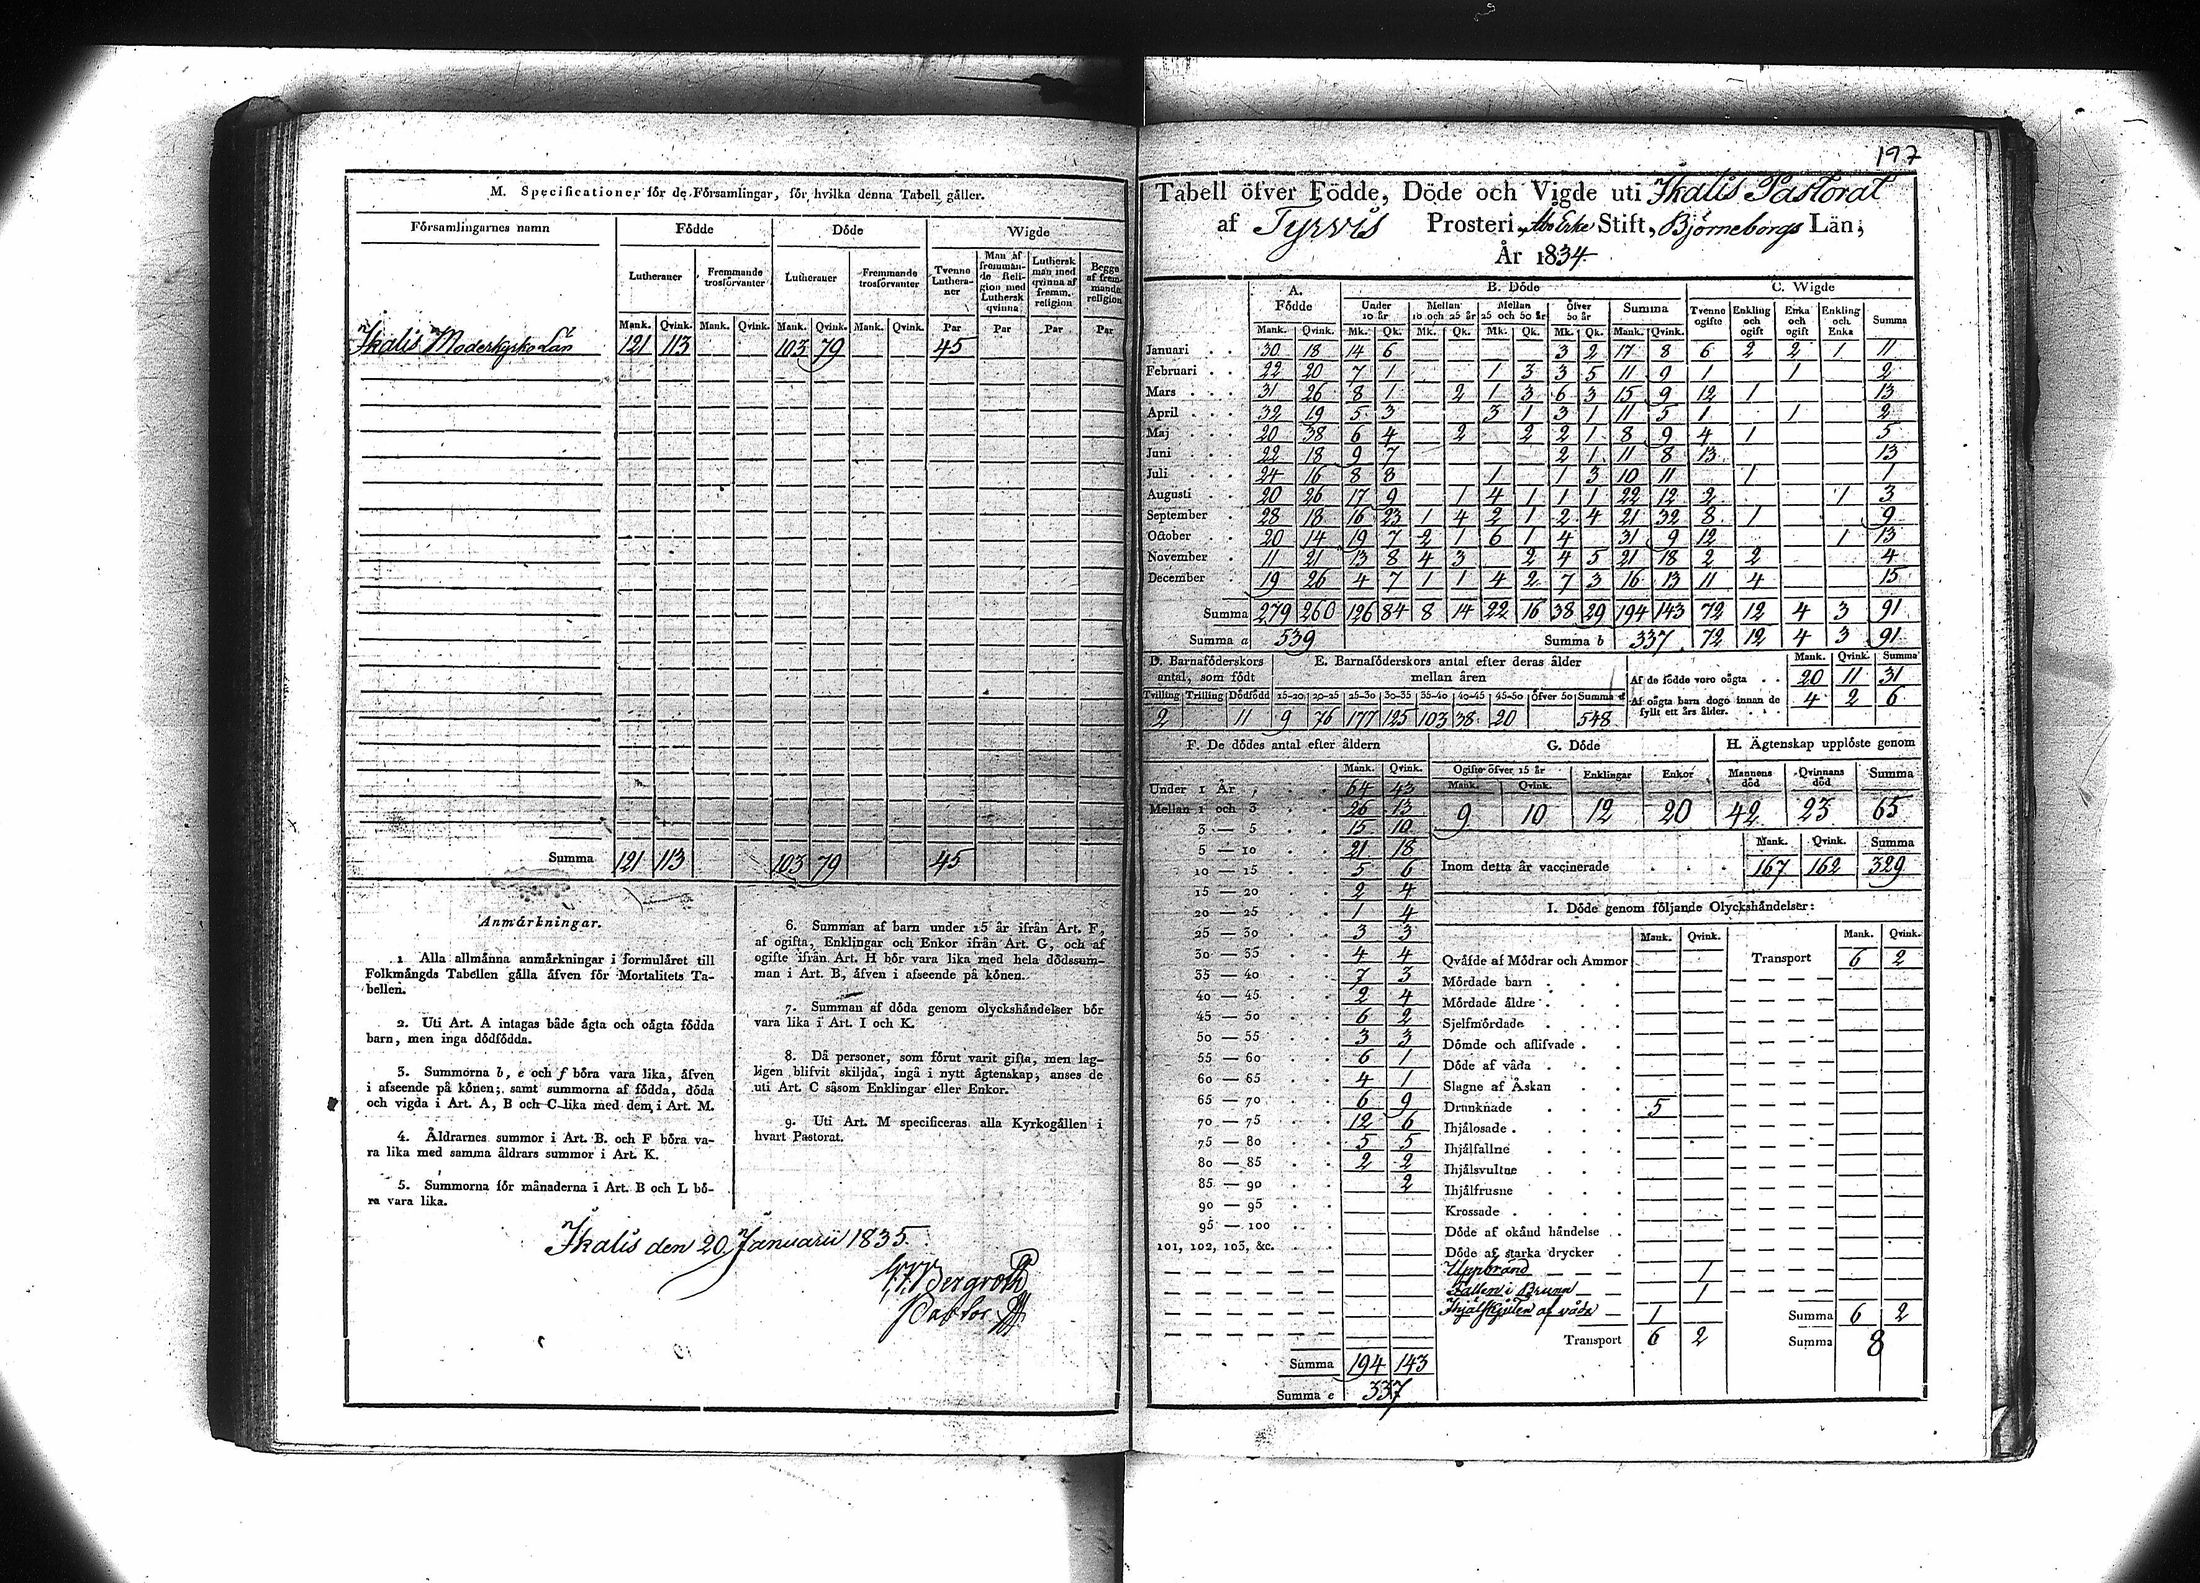 M. Specificationer för de Församlingar, för hvilka denna Tabell gäller.
Församlingarnes namn Födde Döde Wigde
Lutheraner Fremmande trosförvanter Lutheraner Fremmande trosförvanter Tvenne Lutheraner Man af fremmande Religion med Luthersk qvinna Luthersk man med qvinna af fremm. religion Begge af fremmande religion
Mank. Qvink. Mank. Qvink. Mank. Qvink. Mank. Qvink. Par Par Par Par
Ikalis Moderkyrko Län 121 113 103 79 45
Summa 121 113 103 79 45
Anmärkningar.
1 Alla allmänna anmärkningar i formuläret till
Folkmängds Tabellen gälla äfven för Mortalitets Ta-
bellen.
2. Uti Art. A intagas både ägta och oägta födda
barn, men inga dödfödda.
3. Summorna b, e och f böra vara lika, äfven
i afseende på könen; samt summorna af födda, döda
och vigda i Art. A, B och C lika med dem i Art. M.
4. Åldrarnes summor i Art. B. och F böra va-
ra lika med samma åldrars summor i Art. K.
5. Summorna för månaderna i Art. B och L bö-
ra vara lika.
6. Summan af barn under 15 år ifrån Art. F,
af ogifta, Enklingar och Enkor ifrån Art. G, och af
ogifte ifrån Art. H bör vara lika med hela dödssum-
man i Art. B, äfven i afseende på könen.
7. Summan af döda genom olyckshändelser bör
vara lika i Art. I och K.
8. Då personer, som förut varit gifta, men lag-
ligen blifvit skiljda, ingå i nytt ägtenskap, anses de
uti Art. C såsom Enklingar eller Enkor.
9. Uti Art. M specificeras alla Kyrkogällen i
hvart Pastorat.
Ikalis den 20 Januarii 1835.
Bergroth
Pastor
197
Tabell öfver Födde, Döde och Vigde uti Ikalis Pastorat
af Tyrvis Prosteri, Åbo Erke Stift, Björneborgs Län;
År 1834.
A. Födde B. Döde C. Wigde
Under 10 år Mellan 10 och 25 år Mellan 25 och 50 år Öfver 50 år Summa Tvenne ogifte Enkling och ogift Enka och ogift Enkling och Enka Summa
Mank. Qvink. Mk. Qk. Mk. Qk. Mk. Qk. Mk. Qk. Mank. Qvink.
Januari 30 18 14 6 3 2 17 8 6 2 2 1 11
Februari 22 20 7 1 1 3 3 5 11 9 1 1 2
Mars 31 26 8 1 2 1 3 6 3 15 9 12 1 13
April 32 19 5 3 3 1 3 1 11 5 1 1 2
Maj 20 38 6 4 2 2 2 1 8 9 4 1 5
Juni 22 18 9 7 2 1 11 8 13 13
Juli 24 16 8 8 1 1 3 10 11 1 1
Augusti 20 26 17 9 1 4 1 1 1 22 12 2 1 3
September 28 18 16 23 1 4 2 1 2 4 21 32 8 1 9
October 20 14 19 7 2 1 6 1 4 31 9 12 1 13
November 11 21 13 8 4 3 2 4 5 21 18 2 2 4
December 19 26 4 7 1 1 4 2 7 3 16 13 11 4 15
Summa 279 260 126 84 8 14 22 16 38 29 194 143 72 12 4 3 91
Summa a 539 Summa b 337 72 12 4 3 91
D. Barnaföderskors antal, som födt
Tvilling Trilling Dödfödd
2 11
E. Barnaföderskors antal efter deras ålder mellan åren
15-20 20-25 25-30 30-35 35-40 40-45 45-50 Öfver 50 Summa
9 76 177 125 103 38 20 548
Mank. Qvink. Summa
Af de födde voro oägta 20 11 31
Af oägta barn dogo innan de fyllt ett års ålder. 4 2 6
F. De dödes antal efter åldern
Mank. Qvink.
Under 1 År 64 43
Mellan 1 och 3 26 13
3 — 5 15 10
5 — 10 21 18
10 — 15 5 6
15 — 20 2 4
20 — 25 1 4
25 — 30 3 3
30 — 35 4 4
35 — 40 7 3
40 — 45 2 4
45 — 50 6 2
50 — 55 3 3
55 — 60 6 1
60 — 65 4 1
65 — 70 6 9
70 — 75 12 6
75 — 80 5 5
80 — 85 2 2
85 — 90 2
90 — 95
95 — 100
101, 102, 103, &c.
Summa 194 143
Summa e 337
G. Döde
Ogifte öfver 15 år Enklingar Enkor
Mank. Qvink.
9 10 12 20
H. Ägtenskap upplöste genom
Mannens död Qvinnans död Summa
42 23 65
Mank. Qvink. Summa
Inom detta år vaccinerade 167 162 329
I. Döde genom följande Olyckshändelser:
Mank. Qvink. Mank. Qvink.
Qväfde af Mödrar och Ammor Transport 6 2
Mördade barn
Mördade äldre
Sjelfmördade
Dömde och aflifvade
Döde af våda
Slagne af Åskan
Drunknade 5
Ihjälosade
Ihjälfallne
Ihjälsvultne
Ihjälfrusne
Krossade
Döde af okänd händelse
Döde af starka drycker
Uppbränd 1
Fallen i Brunn 1
Ihjälskjuten af våda 1 Summa 6 2
Transport 6 2 Summa 8